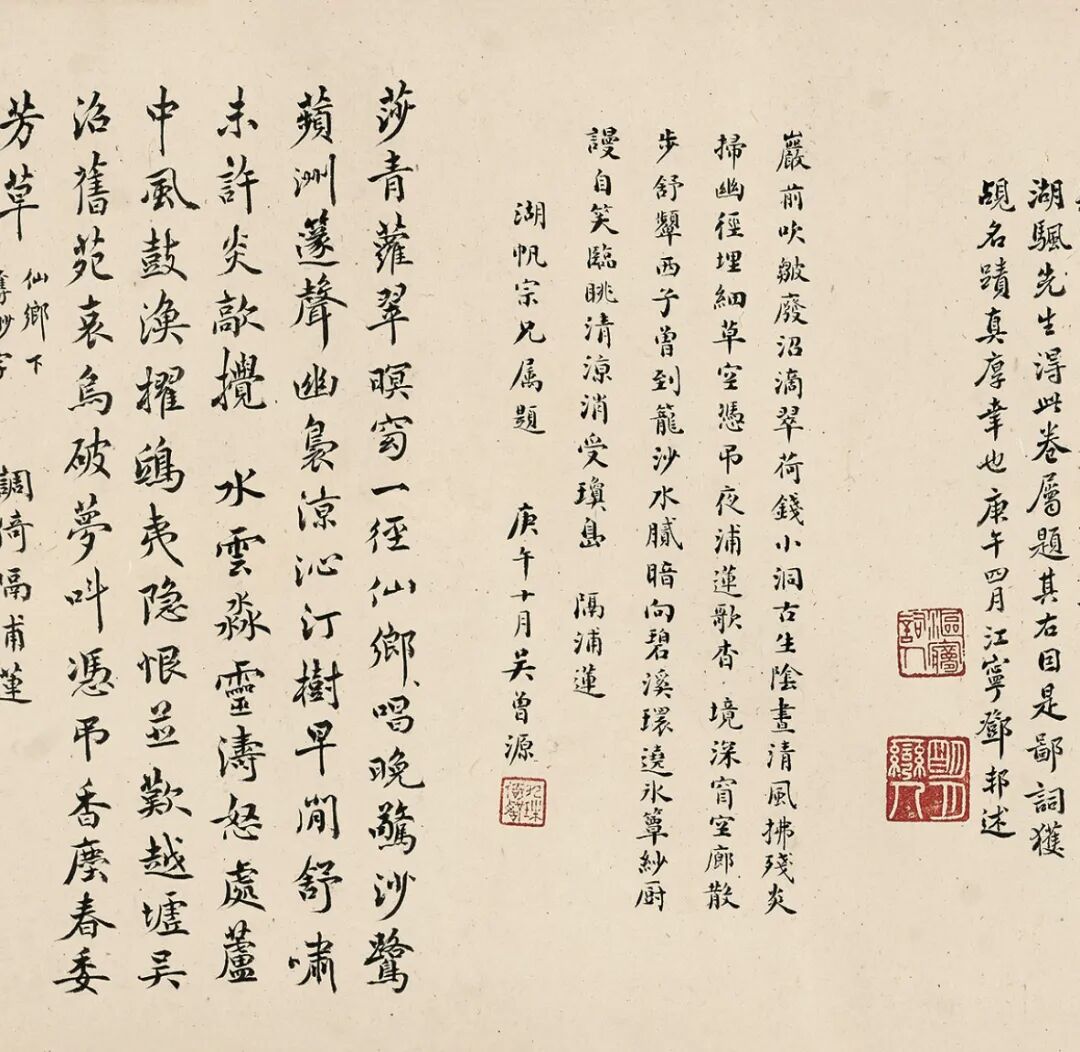 湖颿先生得此卷属題其右目是鄙詞獲
覘名蹟真厚幸也庚午四月江寧鄧邦述
巖前吹皺廢沼滴翠荷錢小洞古生陰晝清風拂殘炎
掃幽徑埋細草空憑弔夜浦蓮歌杳境深窅空廊散
步舒顰西子曾到籠沙水膩暗向碧溪環遶氷簟紗厨
謾自笑臨眺清涼消受瓊島 隔浦蓮
湖帆宗兄属題 庚午十月吴曾源
莎青蘿翠暝窈一徑仙鄉唱晚驚沙鷺
蘋洲邃聲幽裊涼沁汀樹早閒舒嘯
未許炎歊攪 水雲淼靈濤怒處蘆
中風鼓渙擢鴟夷隐恨並歎越墟吴
沼舊苑哀烏破夢叫憑弔香塵春委
芳草 仙鄉下
調倚隔甫蓮